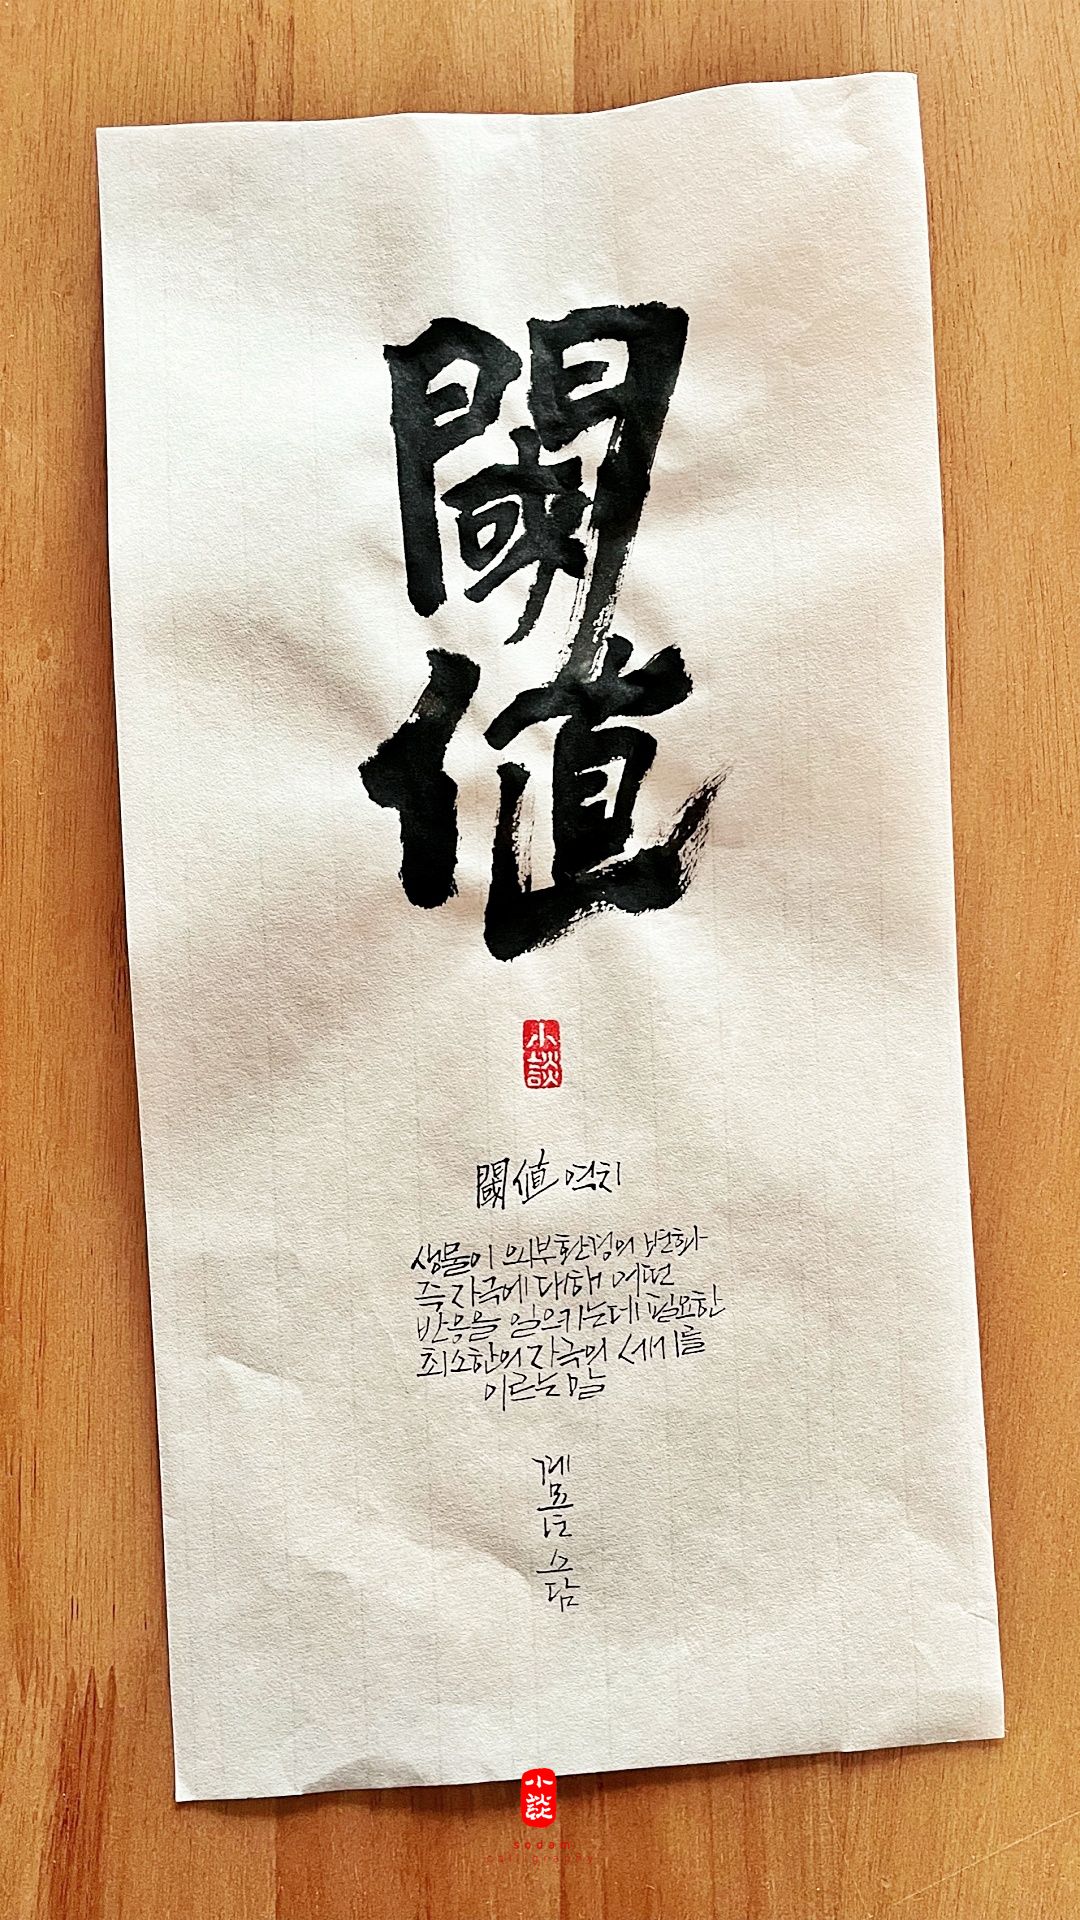 閾値
小談
閾値 역치
생물이 외부환경의 변화
즉 자극에 대해 어떤
반응을 일으키는데 필요한
최소한의 자극의 세기를
이르는 말
소담
小談
sodam
calligraphy